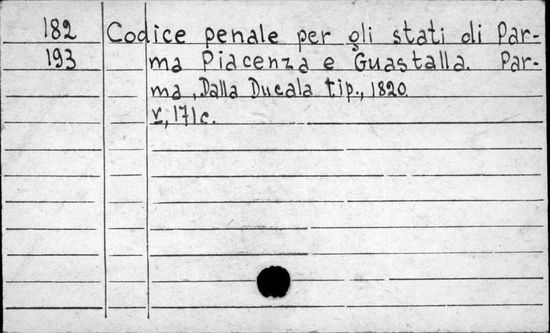 182 Codice penale per gli stati di Par-
193 ma Piacenza e Guastalla. Par-
ma, Dalla Ducala tip., 1820.
v, 171 c.